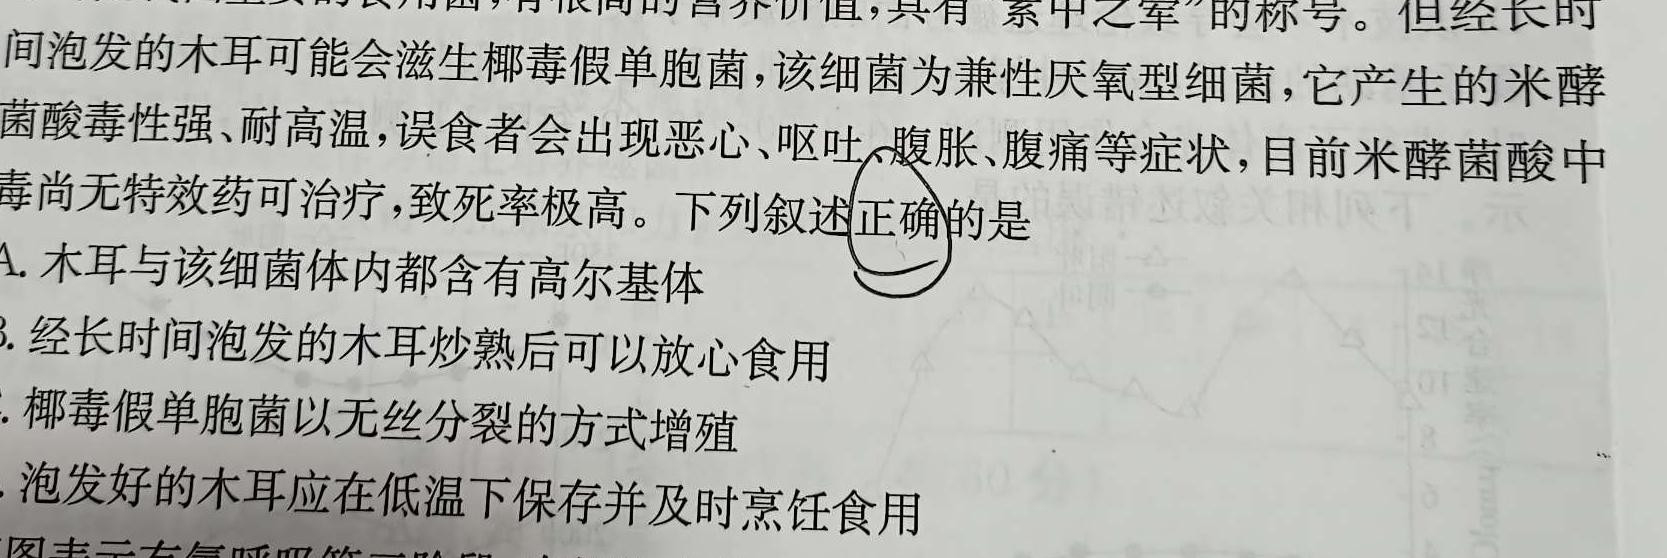 的食用菌,有很高的营养价值,具有“素中之荤”的称号。但经长时
间泡发的木耳可能会滋生椰毒假单胞菌,该细菌为兼性厌氧型细菌,它产生的米酵
菌酸毒性强、耐高温,误食者会出现恶心、呕吐、腹胀、腹痛等症状,目前米酵菌酸中
毒尚无特效药可治疗,致死率极高。下列叙述正确的是
A. 木耳与该细菌体内都含有高尔基体
B. 经长时间泡发的木耳炒熟后可以放心食用
. 椰毒假单胞菌以无丝分裂的方式增殖
. 泡发好的木耳应在低温下保存并及时烹饪食用
图表示有氧呼吸第三阶段